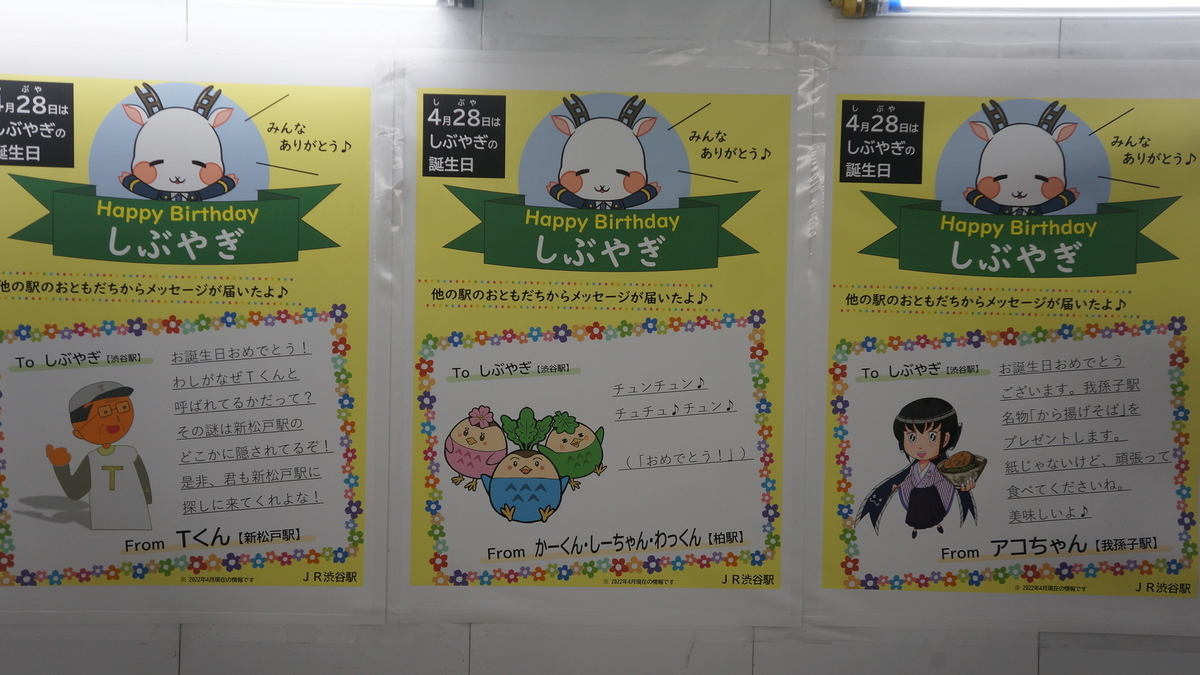 しぶや
4月28日は
しぶやぎの
誕生日
みんな
ありがとう♪
Happy Birthday
しぶやぎ
他の駅のおともだちからメッセージが届いたよ♪
To しぶやぎ【渋谷駅】
お誕生日おめでとう!
わしがなぜTくんと
呼ばれてるかだって?
その謎は新松戸駅の
どこかに隠されてるぞ!
是非、君も新松戸駅に
探しに来てくれよな!
T
T
From Tくん【新松戸駅】
※ 2022年4月現在の情報です
JR渋谷駅
しぶや
4月28日は
しぶやぎの
誕生日
みんな
ありがとう♪
Happy Birthday
しぶやぎ
他の駅のおともだちからメッセージが届いたよ♪
To しぶやぎ【渋谷駅】
チュンチュン♪
チュチュ♪チュン♪
(「おめでとう!」)
From かーくん・しーちゃん・わっくん【柏駅】
※ 2022年4月現在の情報です
JR渋谷駅
しぶや
4月28日は
しぶやぎの
誕生日
みんな
ありがとう♪
Happy Birthday
しぶやぎ
他の駅のおともだちからメッセージが届いたよ♪
To しぶやぎ【渋谷駅】
お誕生日おめでとう
ございます。我孫子駅
名物「から揚げそば」を
プレゼントします。
紙じゃないけど、頑張って
食べてくださいね。
美味しいよ♪
From アコちゃん【我孫子駅】
※ 2022年4月現在の情報です
JR渋谷駅